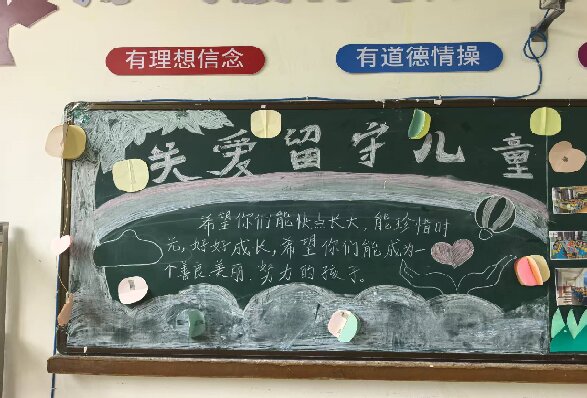 有理想信念
有道德情操
关爱留守儿童
希望你们能快点长大,能珍惜时
光,好好成长,希望你们能成为一
个善良美丽、努力的孩子。